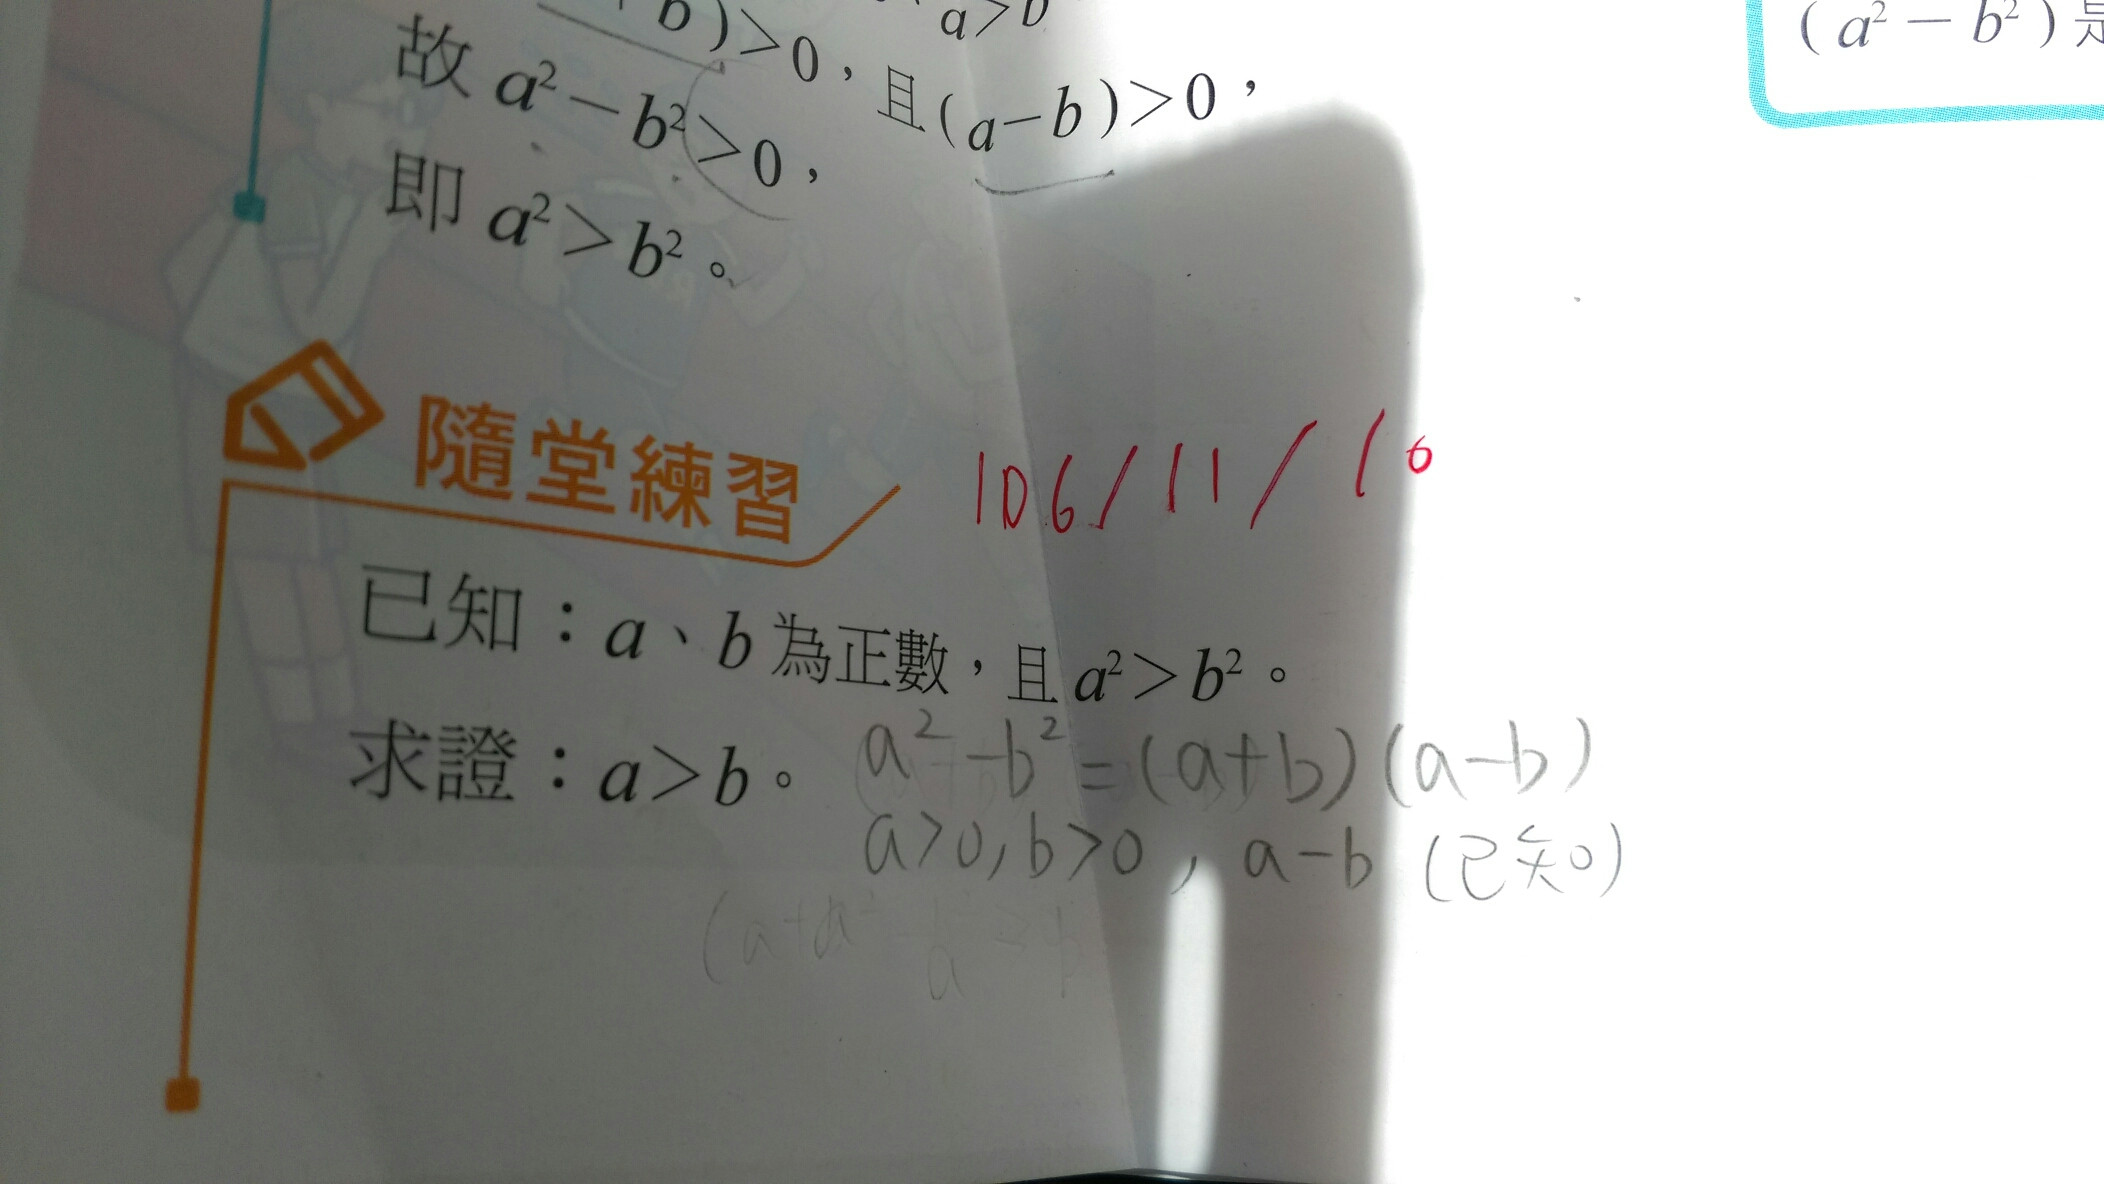 b)>0，且(a-b)>0，
a>b
故 a²-b²>0，
即 a²>b²。
(a²-b²)是
隨堂練習
106/11/10
已知：a、b為正數，且a²>b²。
求證：a>b。
a²-b²=(a+b)(a-b)
a>0,b>0,a-b(已知)